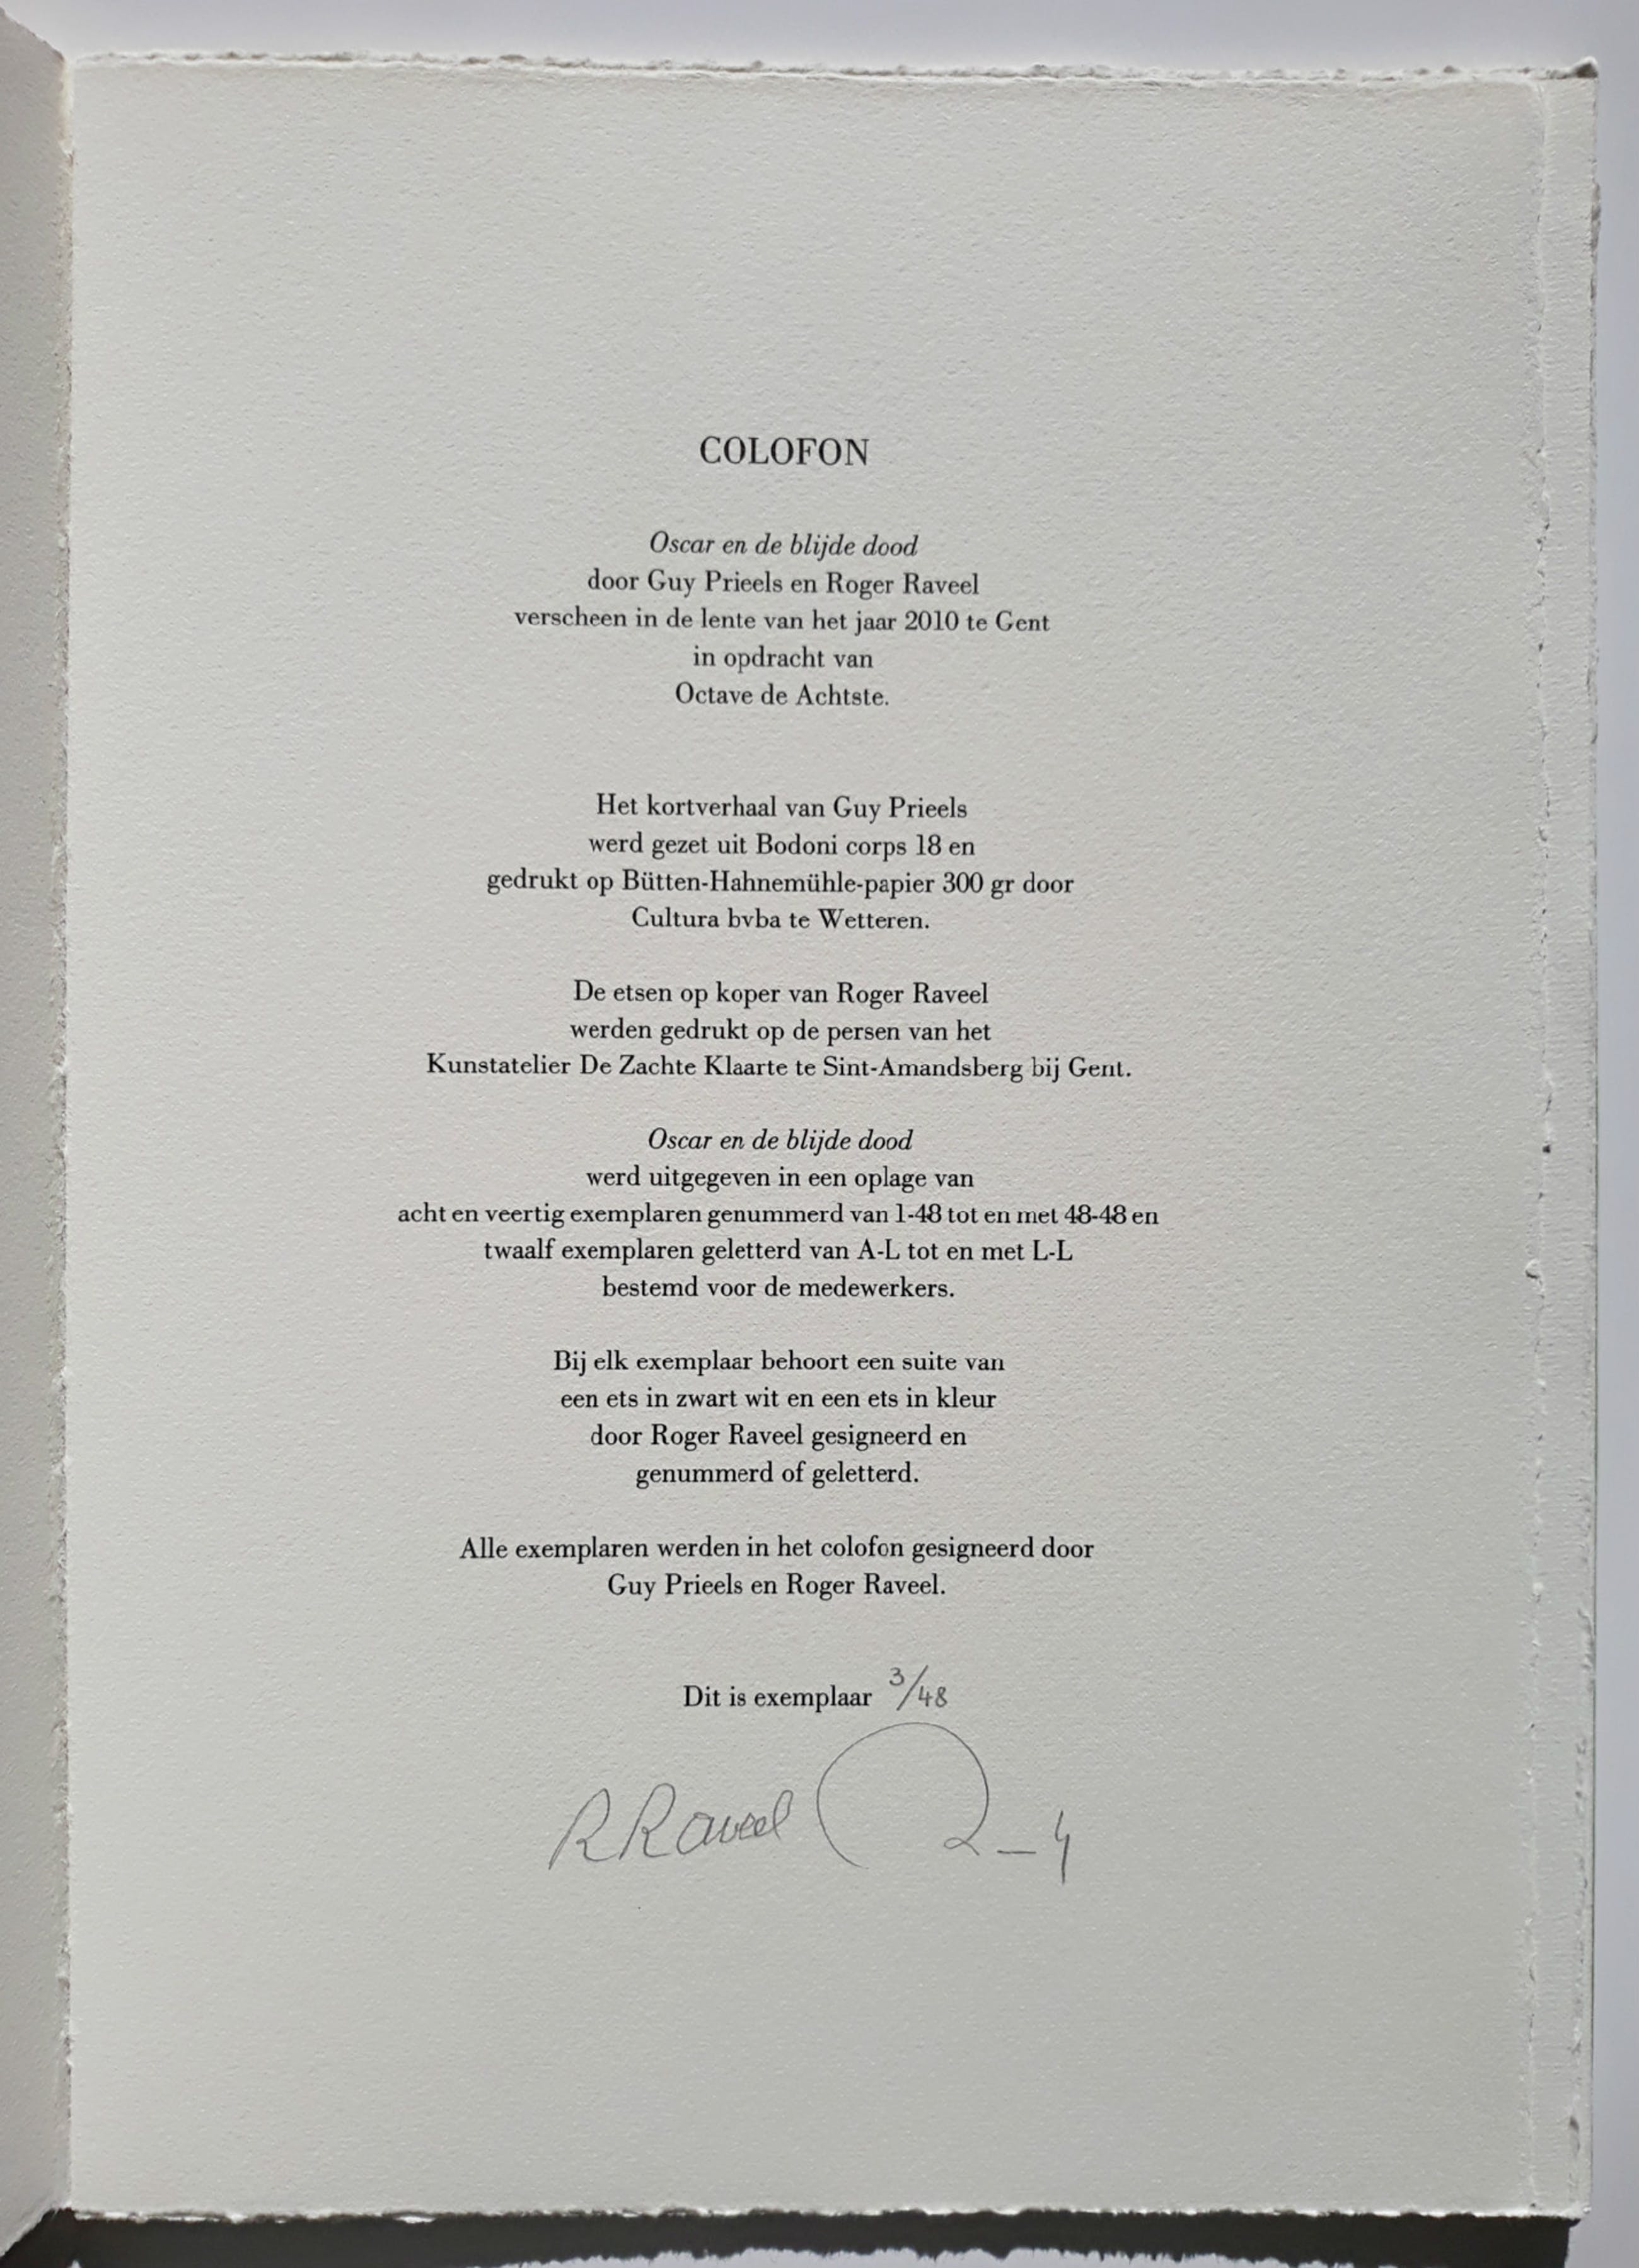 COLOFON
Oscar en de blijde dood
door Guy Prieels en Roger Raveel
verscheen in de lente van het jaar 2010 te Gent
in opdracht van
Octave de Achtste.
Het kortverhaal van Guy Prieels
werd gezet uit Bodoni corps 18 en
gedrukt op Bütten-Hahnemühle-papier 300 gr door
Cultura bvba te Wetteren.
De etsen op koper van Roger Raveel
werden gedrukt op de persen van het
Kunstatelier De Zachte Klaarte te Sint-Amandsberg bij Gent.
Oscar en de blijde dood
werd uitgegeven in een oplage van
acht en veertig exemplaren genummerd van 1-48 tot en met 48-48 en
twaalf exemplaren geletterd van A-L tot en met L-L
bestemd voor de medewerkers.
Bij elk exemplaar behoort een suite van
een ets in zwart wit en een ets in kleur
door Roger Raveel gesigneerd en
genummerd of geletterd.
Alle exemplaren werden in het colofon gesigneerd door
Guy Prieels en Roger Raveel.
Dit is exemplaar 3/48
RRaveel